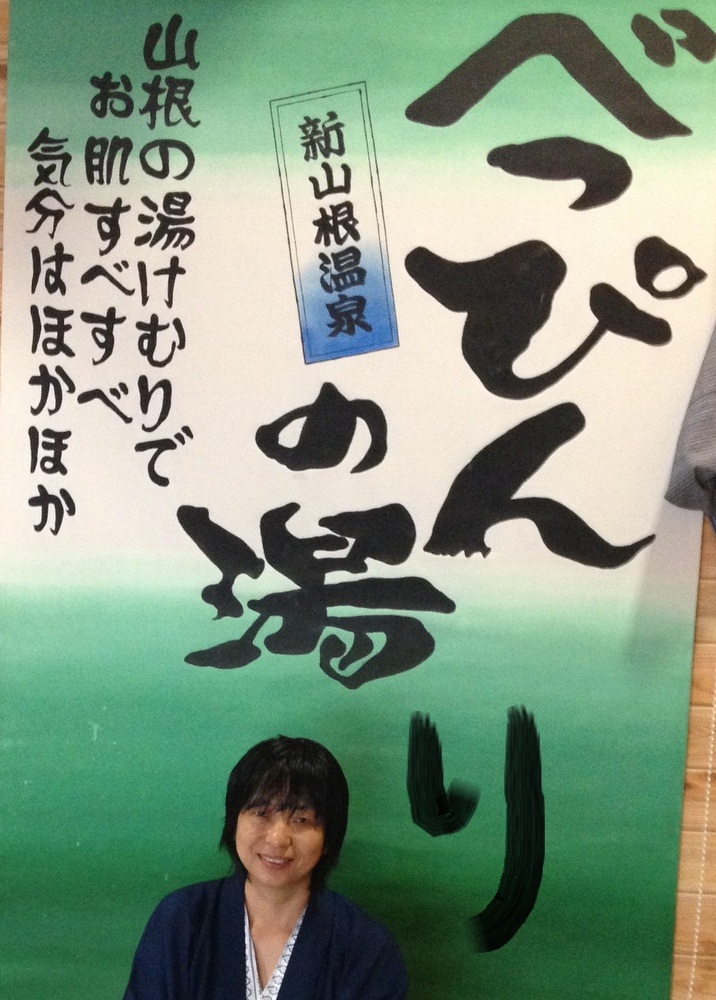 べっぴん
の湯
り
新山根温泉
山根の湯けむりで
お肌すべすべ
気分はほかほか